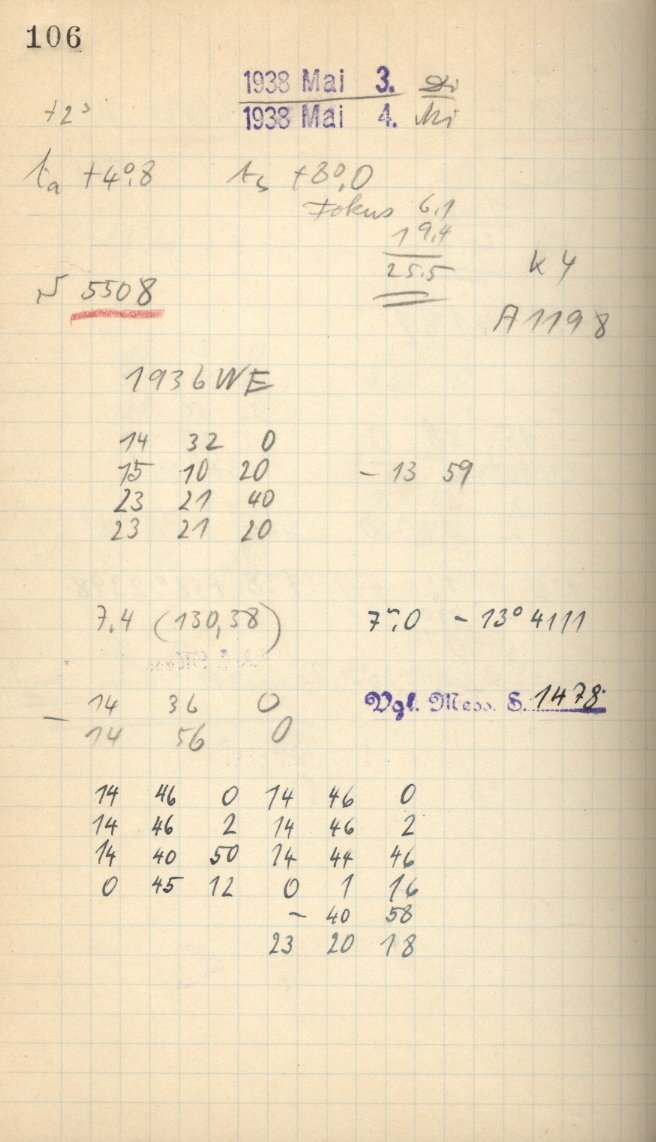 106
1938 Mai 3. Di
1938 Mai 4. Mi
+2ˢ
ta +4°,8 ts +8°,0
Fokus 6,1
19,4
25,5
K 4
N 5508
A 1198
1936 WE
14 32 0
15 10 20 - 13 59
23 21 40
23 21 20
7,4 (130,38) 7ᵐ,0 - 13° 4111
14 36 0 Vgl. Mess. S. 1478
- 14 56 0
14 46 0 14 46 0
14 46 2 14 46 2
14 40 50 14 44 46
0 45 12 0 1 16
- 40 58
23 20 18